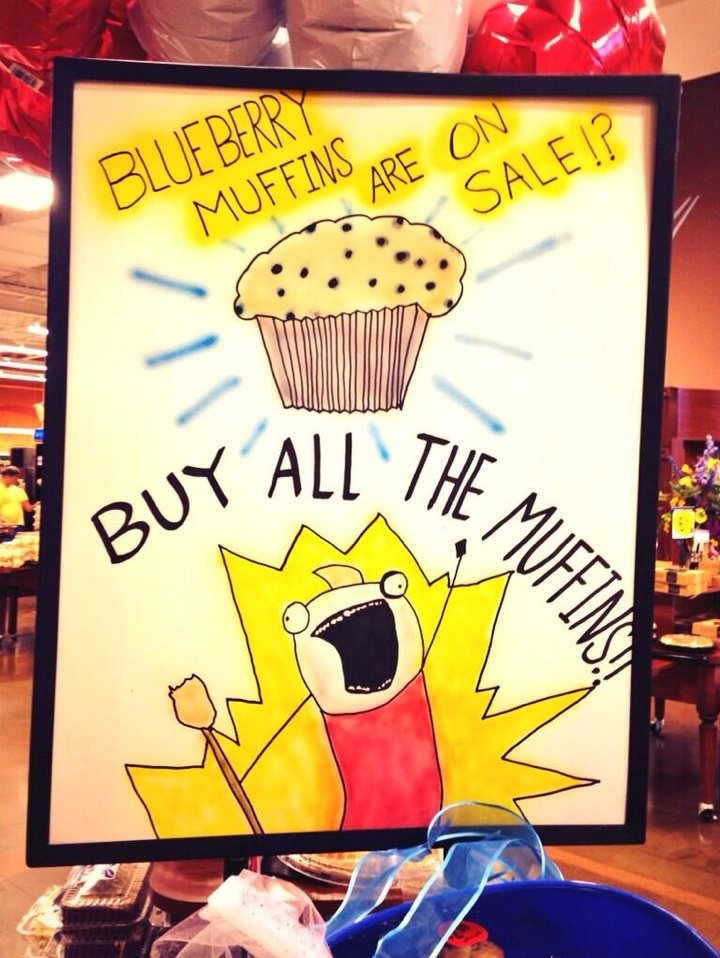 BLUEBERRY
MUFFINS ARE ON
SALE!?
BUY ALL THE MUFFINS!!